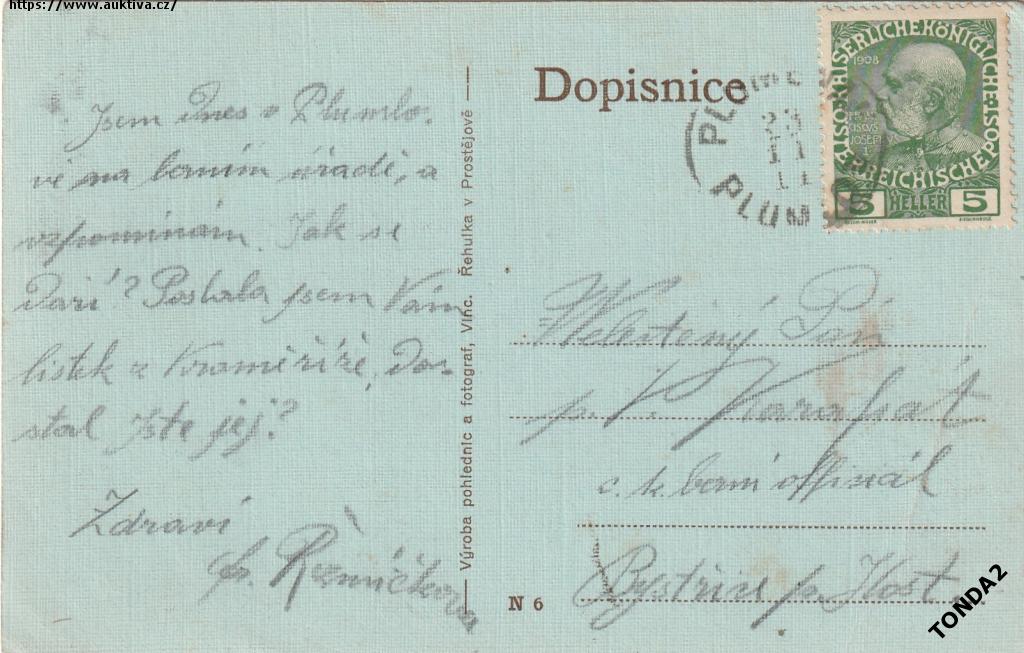 https://www.auktiva.cz/
Jsem dnes v Plumlo-
vě na berním úřadě, a
vzpomínám. Jak se
daří? Poslala jsem Vám
lístek z Kroměříže, do-
stal jste jej?
Zdraví
Řezníčkova
Výroba pohlednic a fotograf, Vinc. Řehulka v Prostějově
Dopisnice
PLUM
23
11
11
PLUM
KAISERLICHE KÖNIGLICHE ÖSTERREICHISCHE POST
1908
5 HELLER 5
Velectěný Pán
p. V. Karafiát
c. k. berní officiál
Bystřice p. Host.
N 6
TONDA2